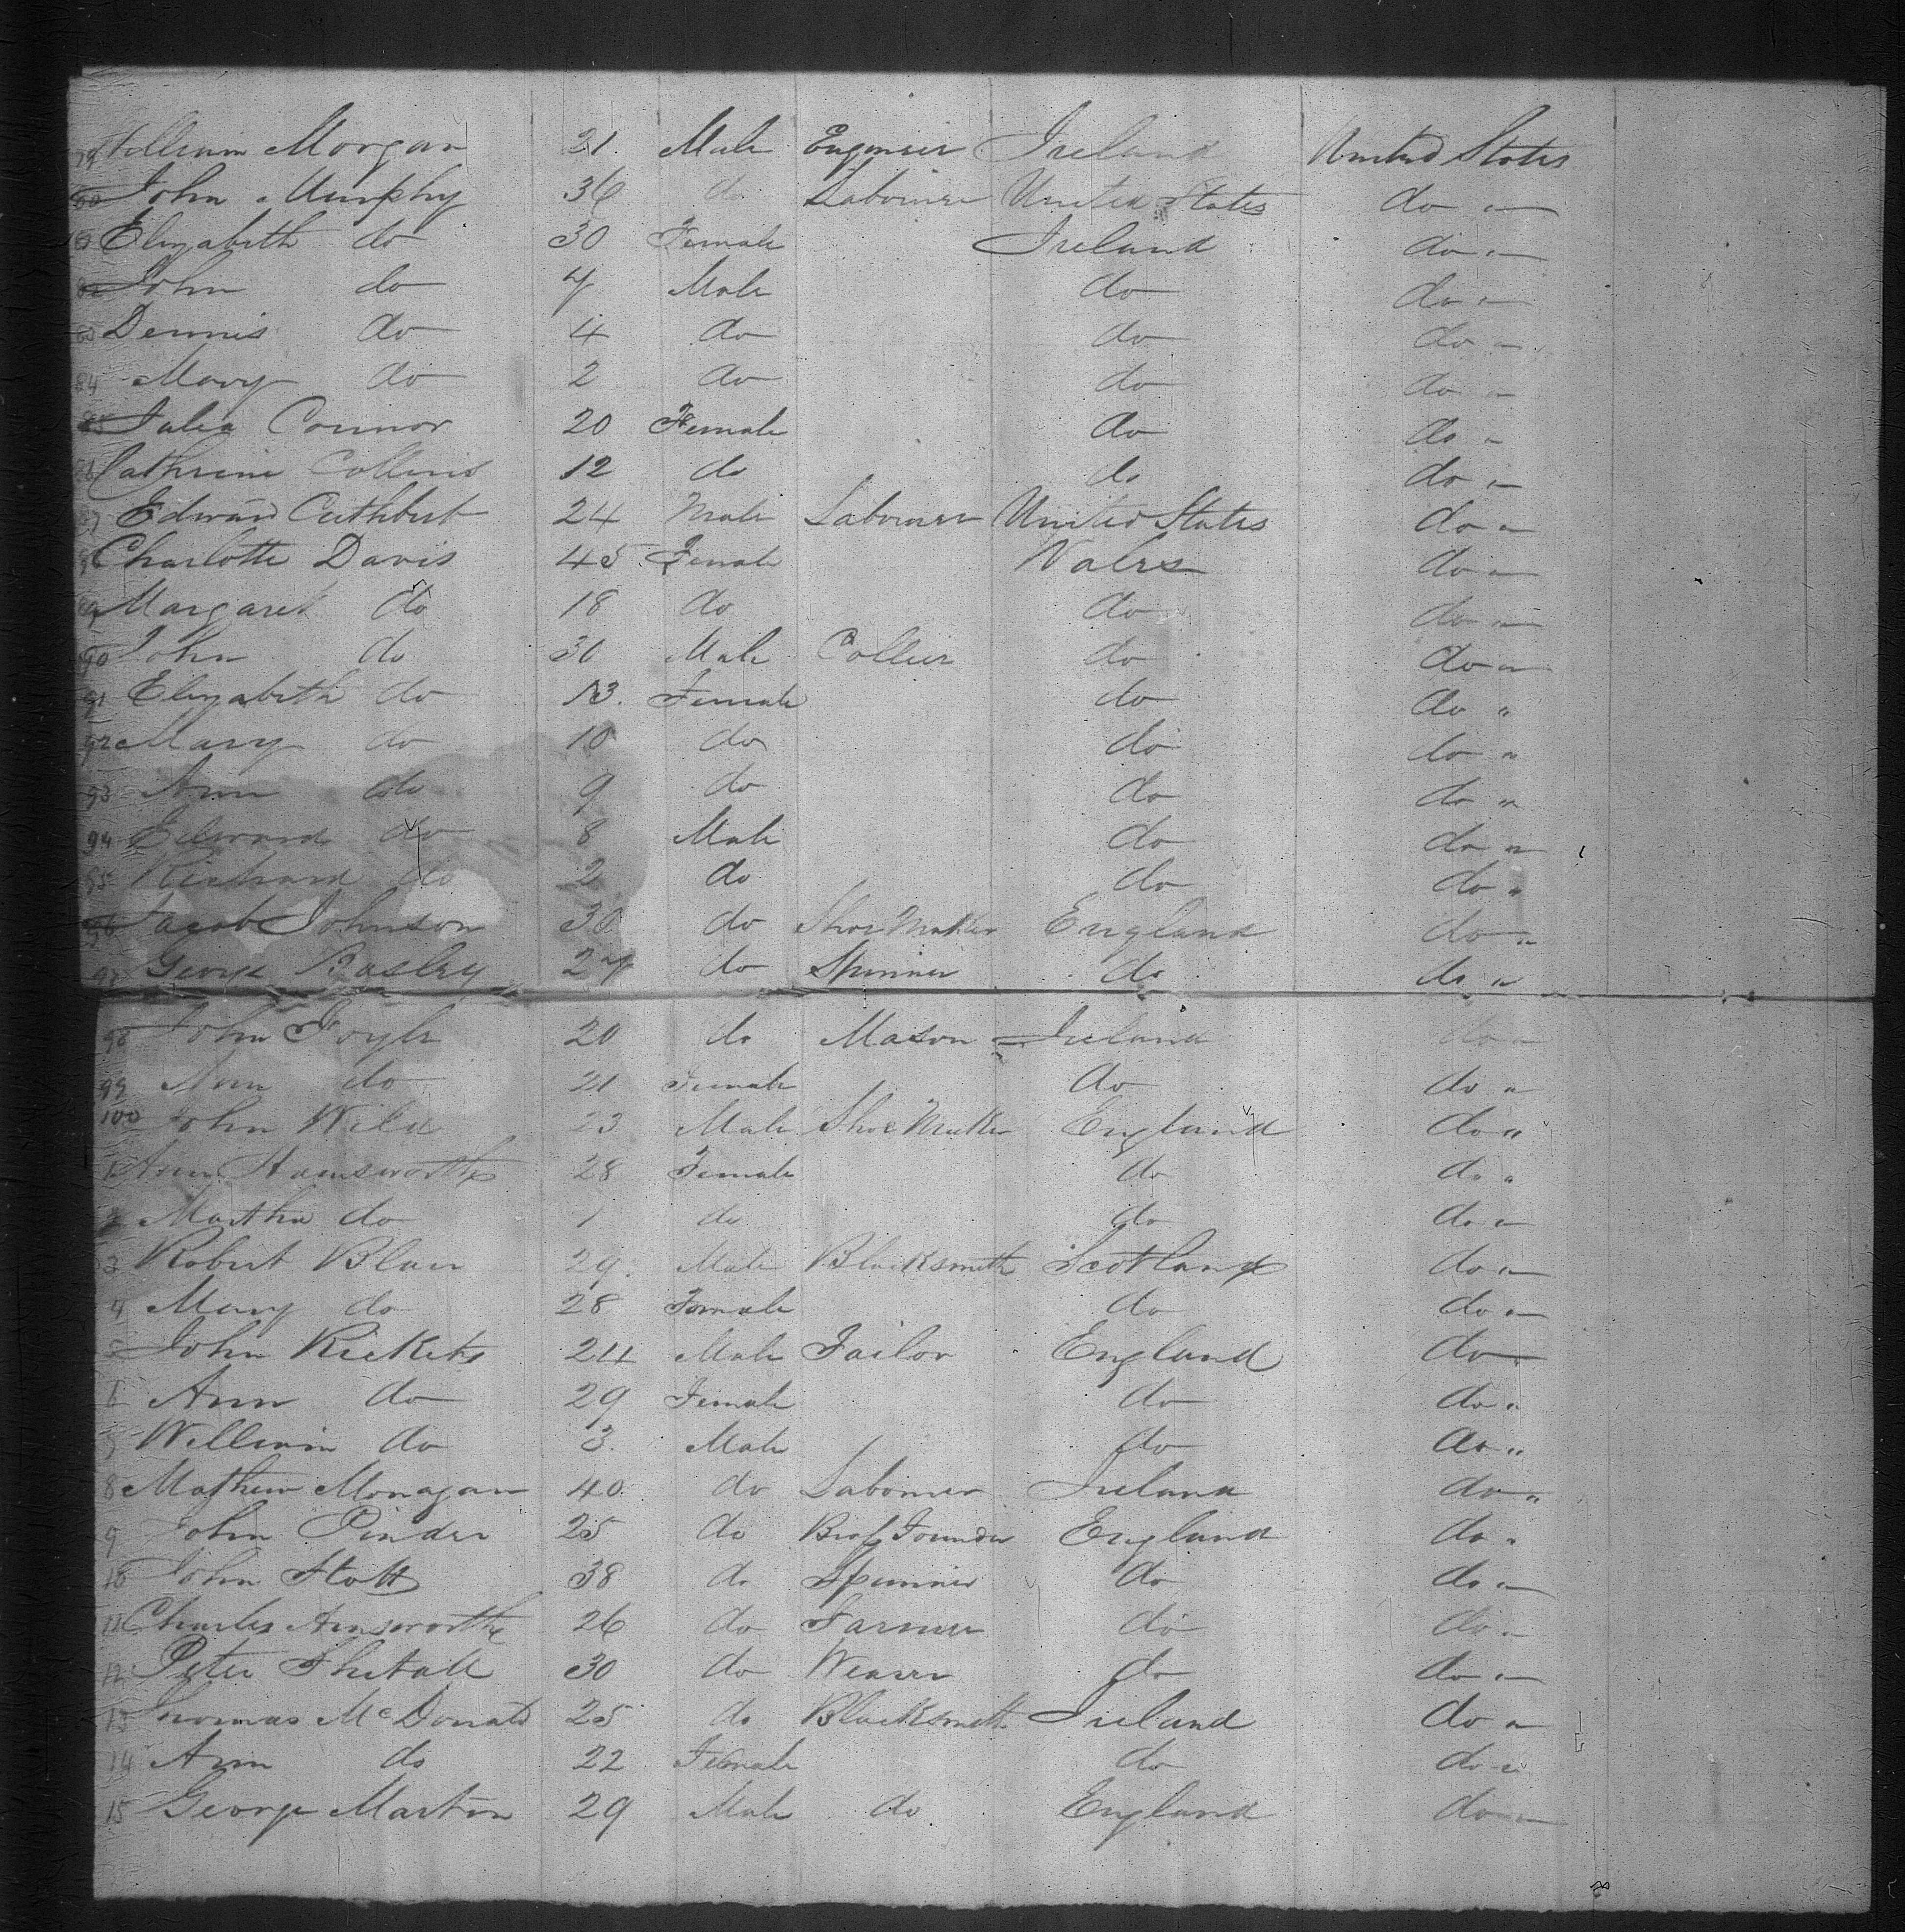 79 William Morgan 21. Male Engineer Ireland United States
80 John Murphy 36 do Labourer United States do "
Elizabeth do 30 Female Ireland do "
82 John do 7 Male do do "
83 Dennis do 4 do do do "
84 Mary do 2 do do do "
85 Julia Connor 20 Female do do "
86 Cathrine Collins 12 do do do "
87 Edward Cuthbert 24 Male Labourer United States do "
Charlotte Davis 45 Female Wales do "
89 Margaret do 18 do do do "
90 John do Male Collier do do "
91 Elizabeth do 13. Female do do "
92 Mary do 10 do do do "
93 Ann do 9 do do do "
94 Edward do 8 Male do do "
95 Richard do 2 do do do "
96 Jacob Johnson 30 do Shoe Maker England do "
97 George Basley 27 do Spinner do do "
98 John Foyle 20 do Mason Ireland do "
99 Ann do 21 Female do do "
100 John Wild 23 Male Shoe Maker England do "
1 Ann Hainsworth 28 Female do do "
2 Martha do 1 do do do "
3 Robert Blair 29. Male Blacksmith Scotland do "
4 Mary do 28 Female do do "
5 John Rickets 24 Male Tailor England do "
6 Ann do 29 Female do do "
7 William do 3. Male do do "
8 Mathew Monagan 40. do Labourer Ireland do "
9 John Pinder 25 do Founder England do "
10 John Stott 38 do Spinner do do "
11 Charles Ainsworth 26 do Farmer do do "
12 Peter 30 do Weaver do do "
13 Thomas McDonald 25 do Blacksmith Ireland do "
14 Ann do 22 Female do do "
15 George Marton 29 Male do England do "